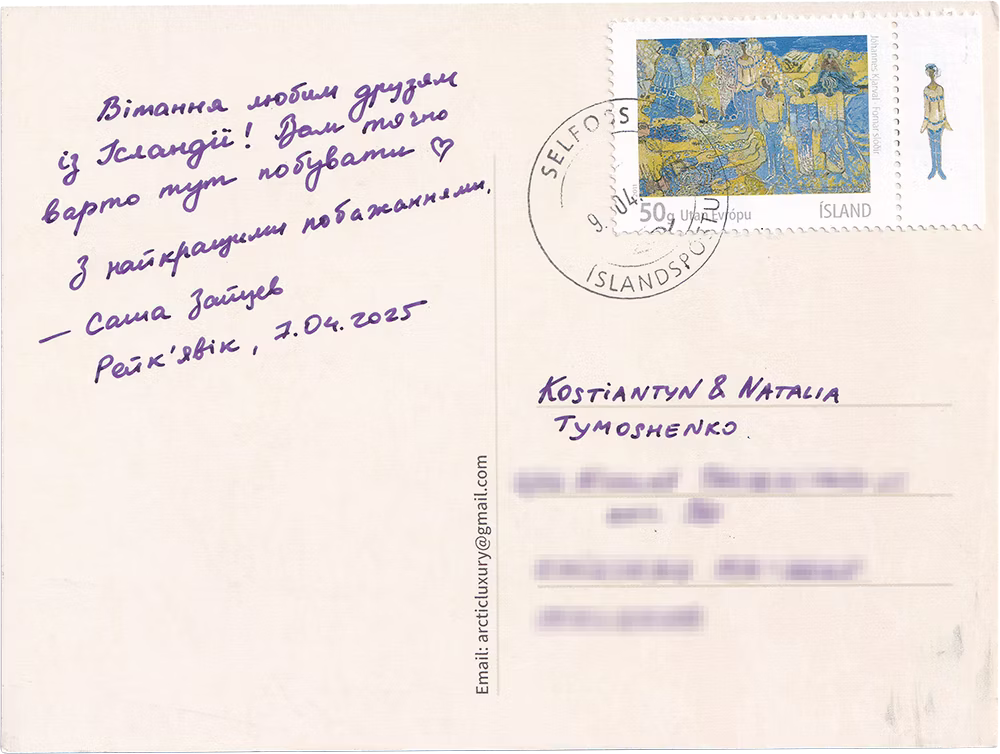 Вітання любим друзям
із Ісландії! Вам точно
варто тут побувати ♡
З найкращими побажаннями,
— Саша Зайцев
Рейк'явік, 7.04.2025
Email: arcticluxury@gmail.com
SELFOSS
9. 04.
ÍSLANDSPÓSTU
Jóhannes Kjarval - Fornar slóðir
50g Utan Evrópu
ÍSLAND
KOSTIANTYN & NATALIA
TYMOSHENKO.